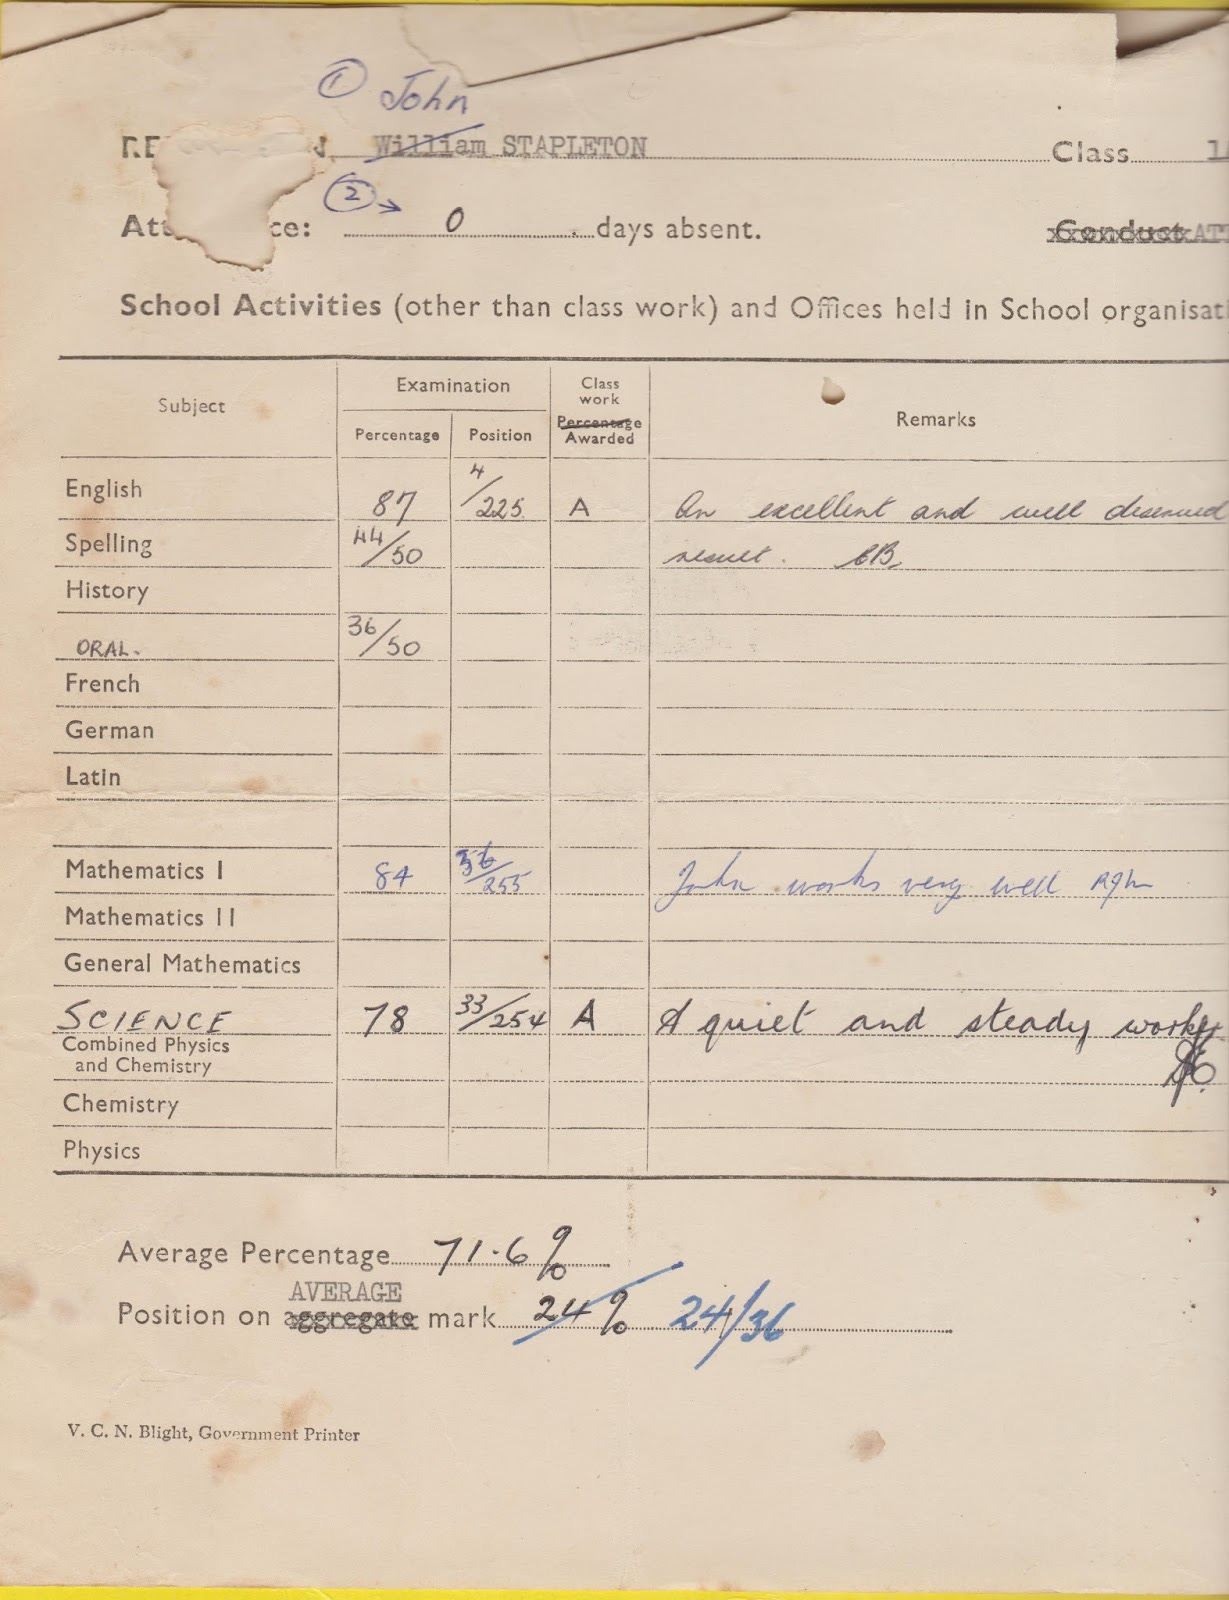 ① John
William STAPLETON Class
ce: ② → 0 days absent. Conduct
School Activities (other than class work) and Offices held in School
Subject Examination Class work Percentage Awarded Remarks
Percentage Position
English 87 4/225 A An excellent and well deserved
Spelling 44/50 result.
History
ORAL. 36/50
French
German
Latin
Mathematics I 84 /255 John works very well
Mathematics II
General Mathematics
SCIENCE 78 33/254 A A quiet and steady worker
Combined Physics
and Chemistry
Chemistry
Physics
Average Percentage 71.6%
AVERAGE
Position on aggregate mark 24% 24/36
V. C. N. Blight, Government Printer